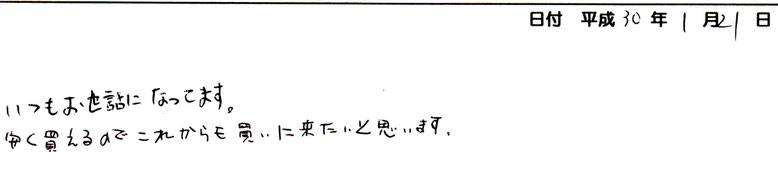 日付 平成 30 年 1 月 21 日
いつもお世話になってます。
安く買えるのでこれからも買いに来たいと思います。